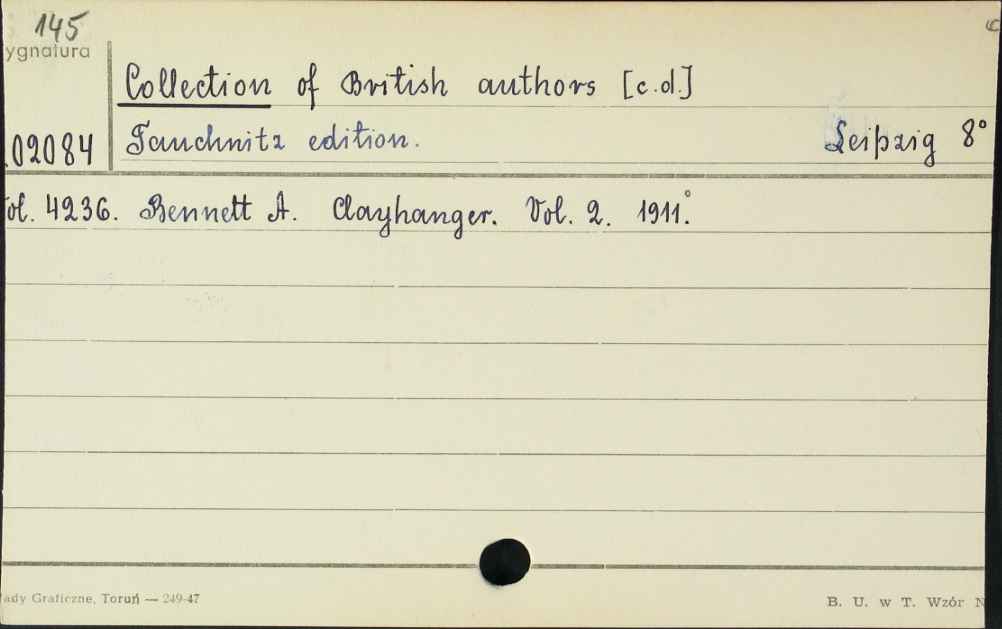 145
ygnatura
Collection of British authors [c.d.]
02084 Tauchnitz edition. Leipzig 8°
ol. 4236. Bennett A. Clayhanger. Vol. 2. 1911.°
ady Graficzne, Toruń — 249-47 B. U. w T. Wzór N